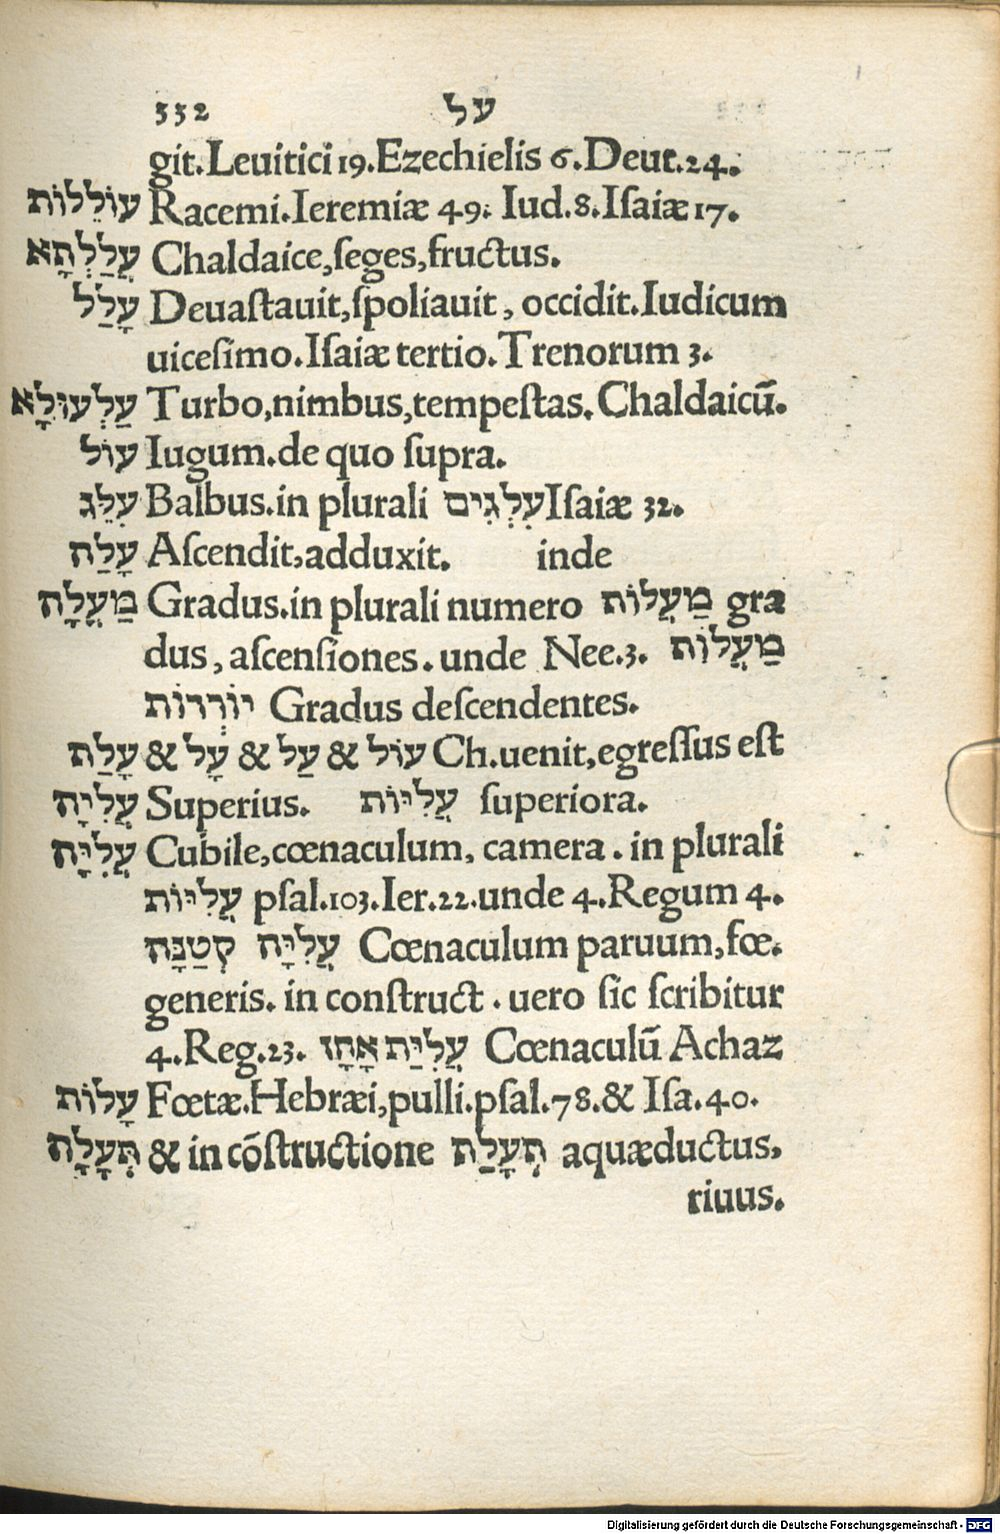 332 על
git.Leuitici 19.Ezechielis 6.Deut.24.
עוֹלֵלוֹת Racemi.Ieremiæ 49. Iud.8.Iſaiæ 17.
עֲלַלְתָא Chaldaice,ſeges,fructus.
עָלַל Deuaſtauit,ſpoliauit, occidit.Iudicum
uiceſimo.Iſaiæ tertio.Trenorum 3.
עַלְעוּלָא Turbo,nimbus,tempeſtas.Chaldaicū.
עוֹל Iugum.de quo ſupra.
עִלֵּג Balbus.in plurali עִלְגִים Iſaiæ 32.
עָלַה Aſcendit,adduxit. inde
מַעֲלָה Gradus.in plurali numero מַעֲלוֹת gra
dus, aſcenſiones.unde Nee.3. מַעֲלוֹת
יוֹרְדוֹת Gradus deſcendentes.
עָלַת & עָל & עַל & עוֹל Ch.uenit,egreſſus eſt
עֲלִיָה Superius. עֲלִיּוֹת ſuperiora.
עֲלִיָּה Cubile,cœnaculum, camera. in plurali
עֲלִיּוֹת pſal.103.Ier.22.unde 4.Regum 4.
עֲלִיָּה קְטַנָּה Cœnaculum paruum,fœ.
generis. in conſtruct. uero ſic ſcribitur
4.Reg.23. עֲלִיַּת אָחָז Cœnaculū Achaz
עָלוֹת Fœtæ.Hebræi,pulli.pſal.78.& Iſa.40.
תְּעָלָה & in cōſtructione תְּעָלַת aquæductus,
riuus.
Digitalisierung gefördert durch die Deutsche Forschungsgemeinschaft - DFG